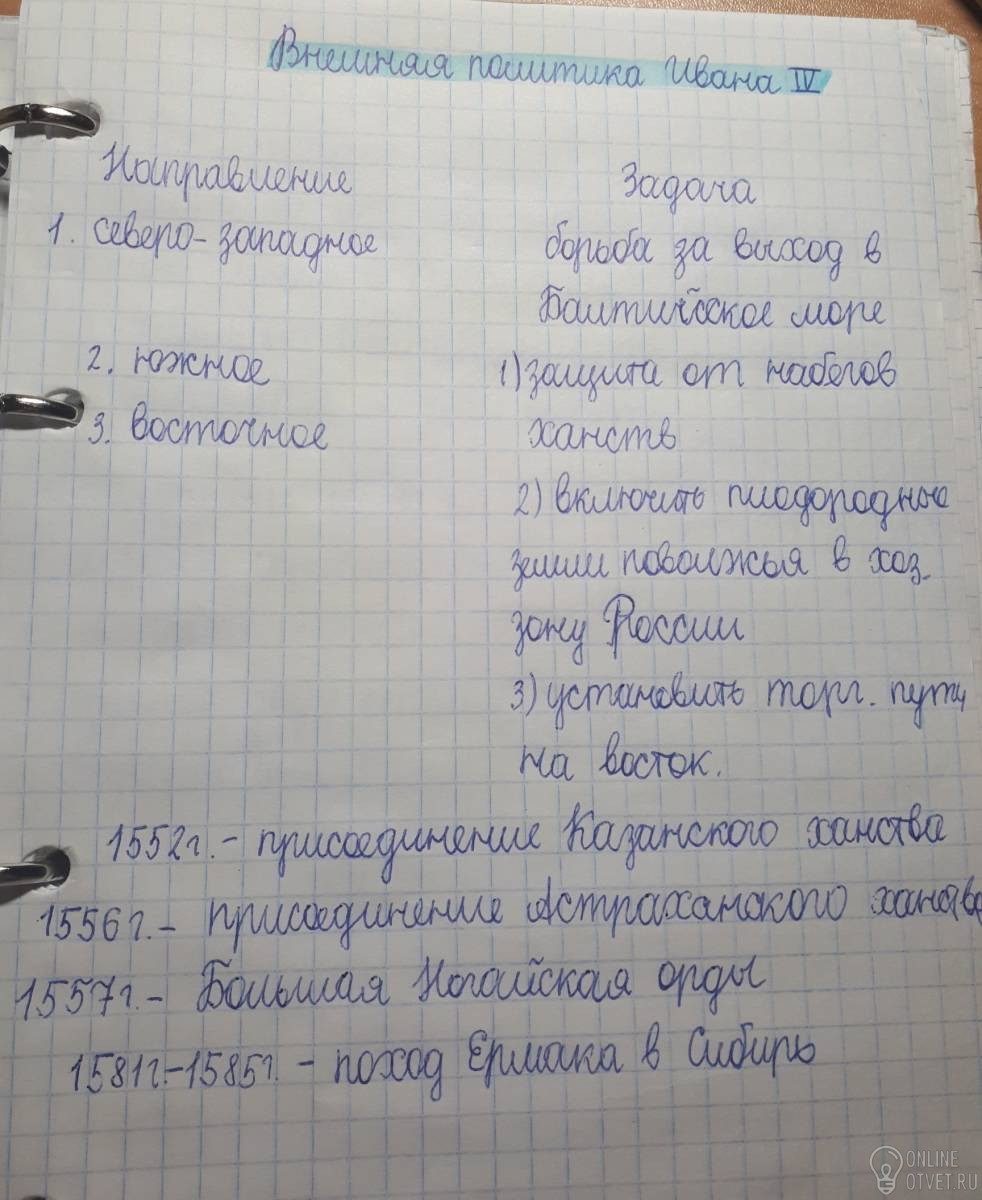 Внешняя политика Ивана IV
Направление Задача
1. северо-западное борьба за выход в
Балтийское море
2. южное 1) защита от набегов
3. восточное ханств
2) включить плодородные
земли поволжья в хоз.
зону России
3) установить торг. пути
на восток.
1552г. - присоединение Казанского ханства
1556г. - присоединение Астраханского ханства
1557г. - Большая Ногайская орды
1581г.-1585г. - поход Ермака в Сибирь
ONLINE
OTVET.RU